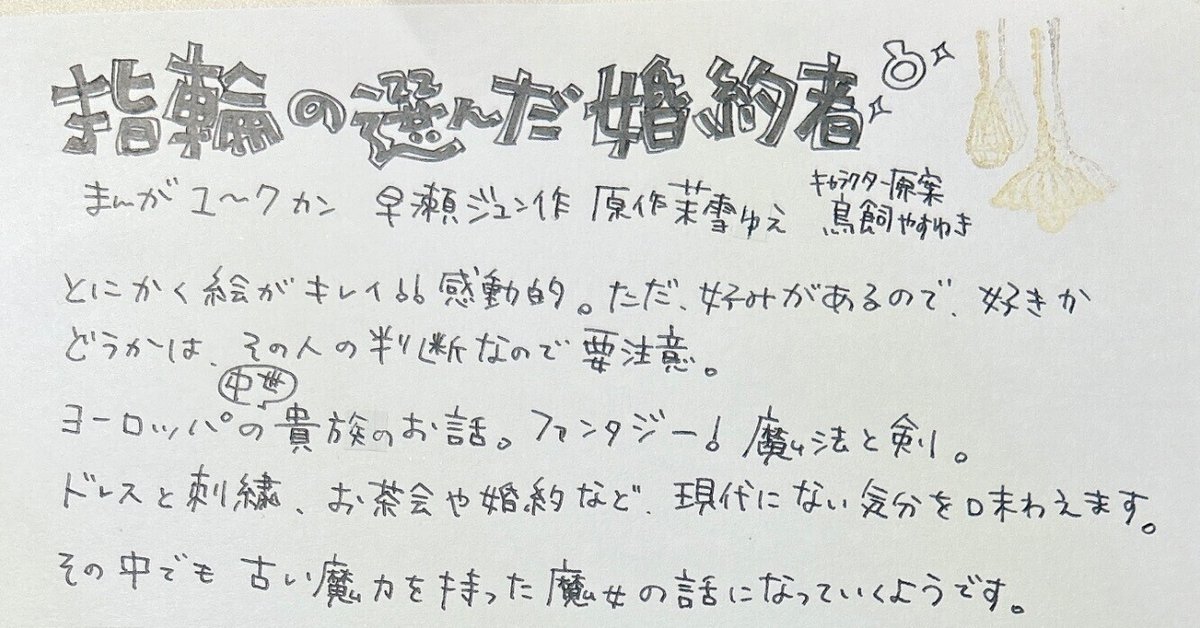 指輪の選んだ婚約者
まんが ユ〜クカン 早瀬ジュン作 原作 茉雪ゆえ キャラクター原案 鳥飼やすゆき
とにかく絵がキレイ!!感動的。ただ、好みがあるので、好きか
どうかは、その人の判断なので要注意。
中世
ヨーロッパの貴族のお話。ファンタジー!魔法と剣。
ドレスと刺繍、お茶会や婚約など、現代にない気分を味わえます。
その中でも古い魔力を持った魔女の話になっていくようです。